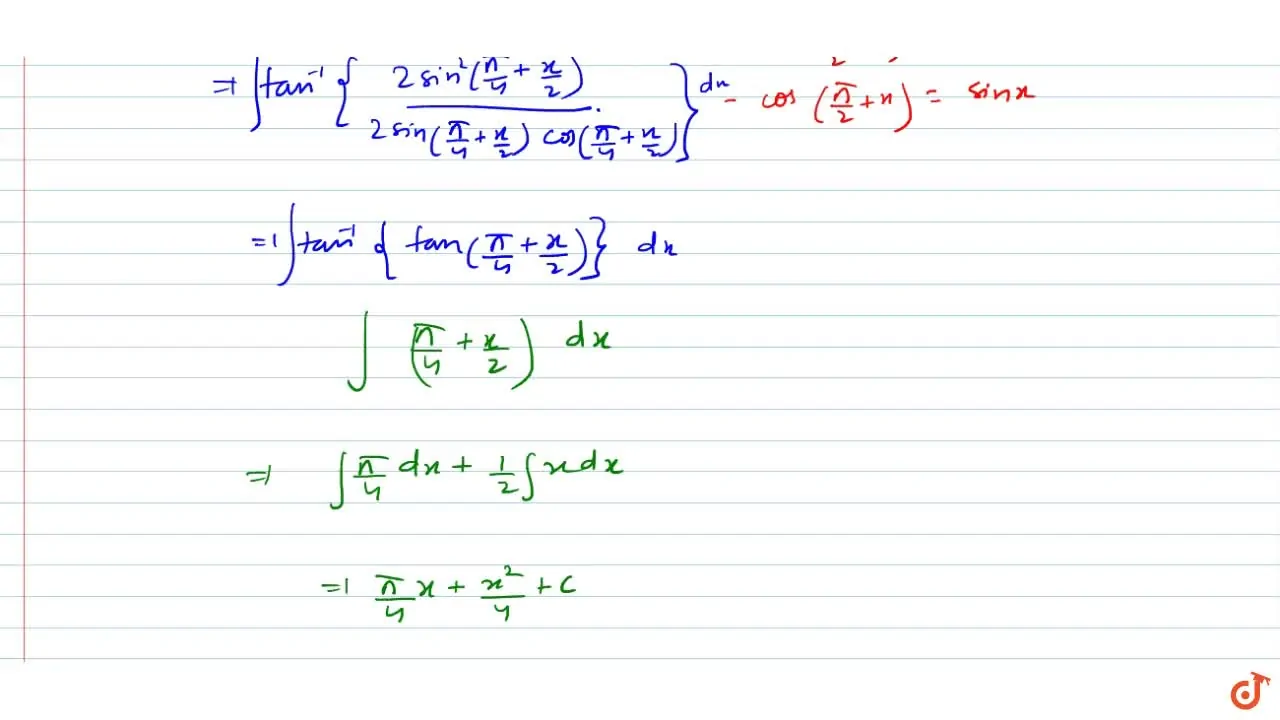 ⇒ ∫ tan⁻¹ { 2 sin² (π/4 + x/2) / 2 sin (π/4 + x/2) cos (π/4 + x/2) } dx
- cos (π/2 + x) = sin x
⇒ ∫ tan⁻¹ { tan (π/4 + x/2) } dx
∫ (π/4 + x/2) dx
⇒ ∫ π/4 dx + 1/2 ∫ x dx
⇒ π/4 x + x²/4 + c